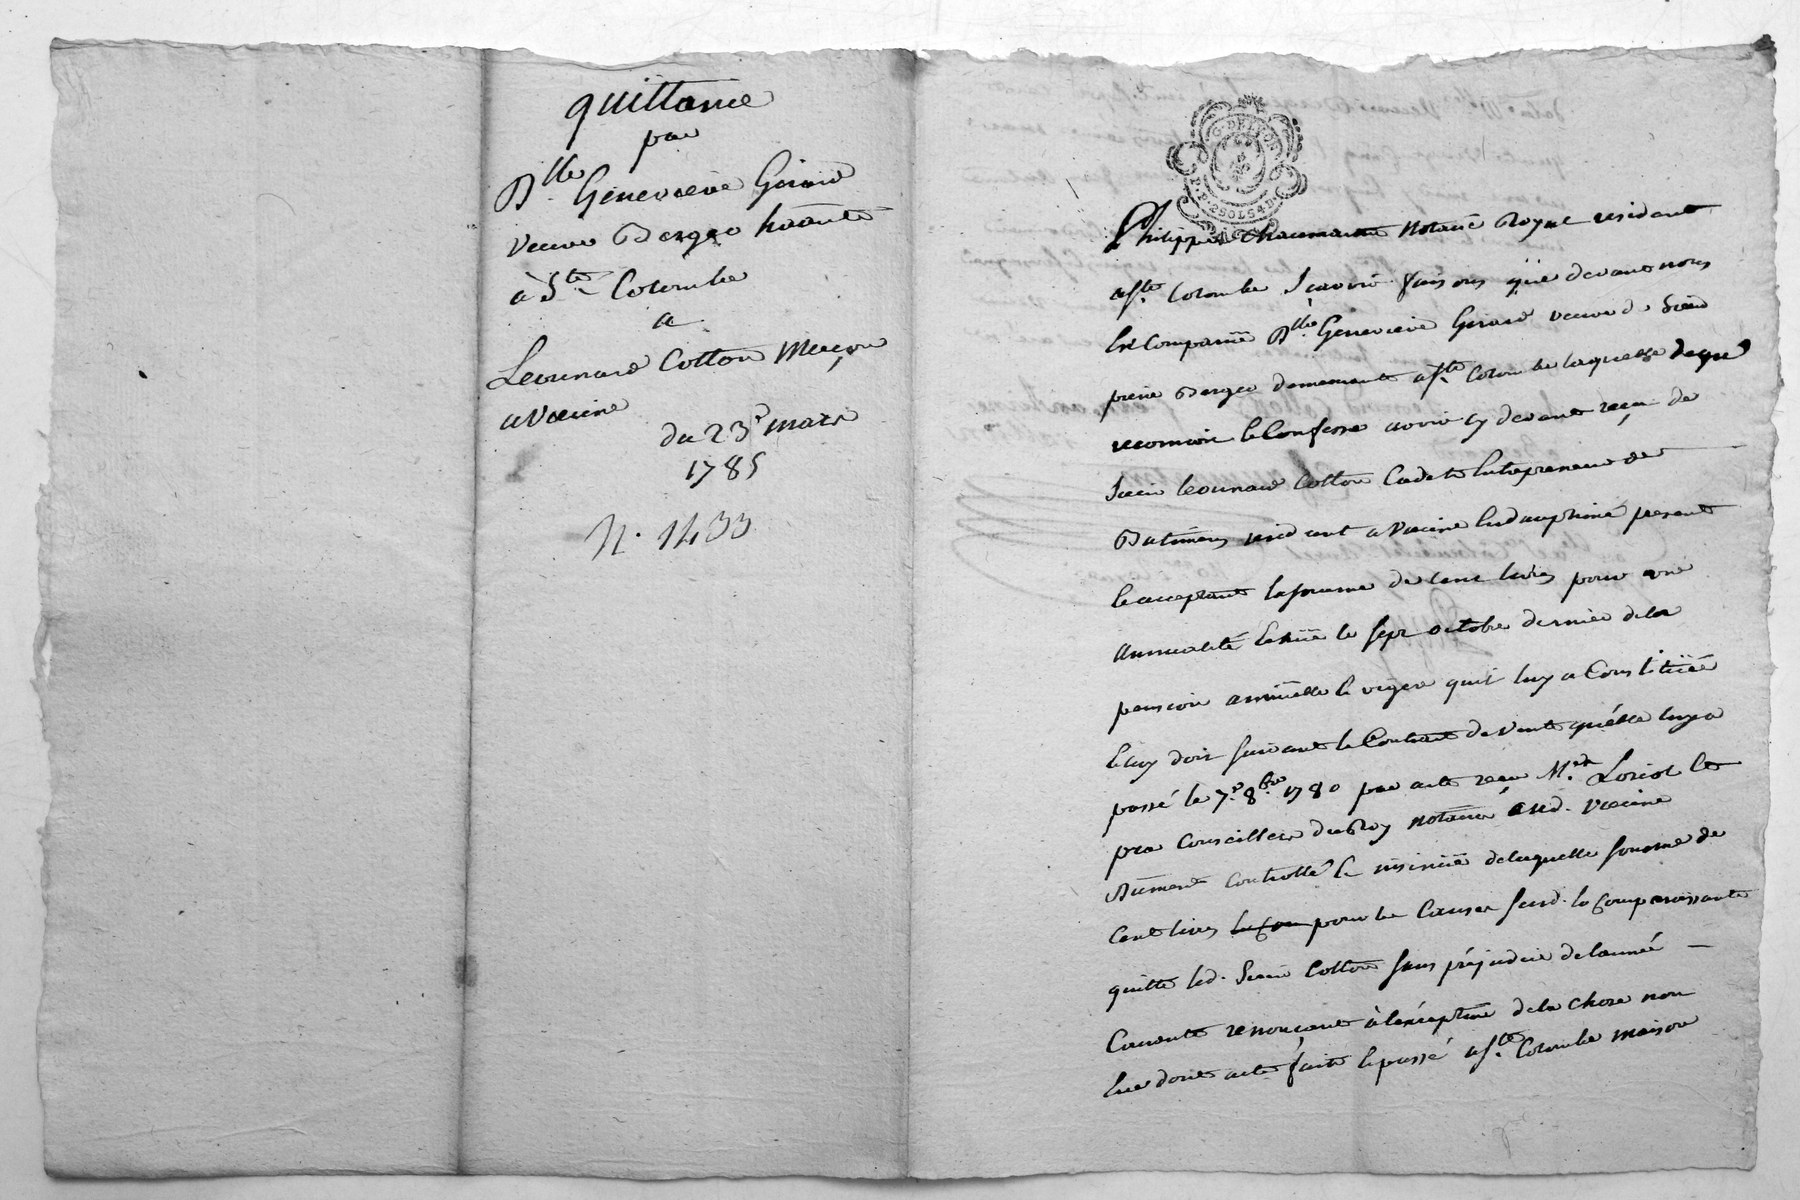 quittance
par
D.lle Genevieve Girard
veuve Berger habitante
à S.te Colombe
a
Leonnard Cotton Maçon
a Vienne
du 23.e mars
1785
N. 1433
G. DE LYON
P.P. 2 SOLS 4 D.
Philippes Chaumartin Notaire Royal residant
a Ste. Colombe scavoir faisons que devant nous
Est Comparüe D.lle Genevieve Girard veuve de Sieur
pierre Berger demeurante a Ste. Colombe laquelle de gré
reconnoit & Confesse avoir cy devant reçu de
Sieur Leonnard Cotton Cadet Entrepreneur de
Batimens residant a Vienne En dauphiné present
& acceptant la somme de Cent livres pour une
annualité Echüe le sept octobre dernier de la
pension annuelle & viagere qu'il luy a Constituée
& luy doit suivant le Contrat de Vente qu'elle luy a
passé le 7.e 8.bre 1780 par acte reçu M.re Loriol &
pra Conseillers du Roy notaires aud. Vienne
düment Controllé & insinüé de laquelle somme de
Cent livres pour les Causes susd. la Comparoissante
quitte led. Sieur Cotton sans préjudice de l'année
Courante renonçant à l'exception de la chose non
Eüe dont acte fait & passé a Ste. Colombe maison